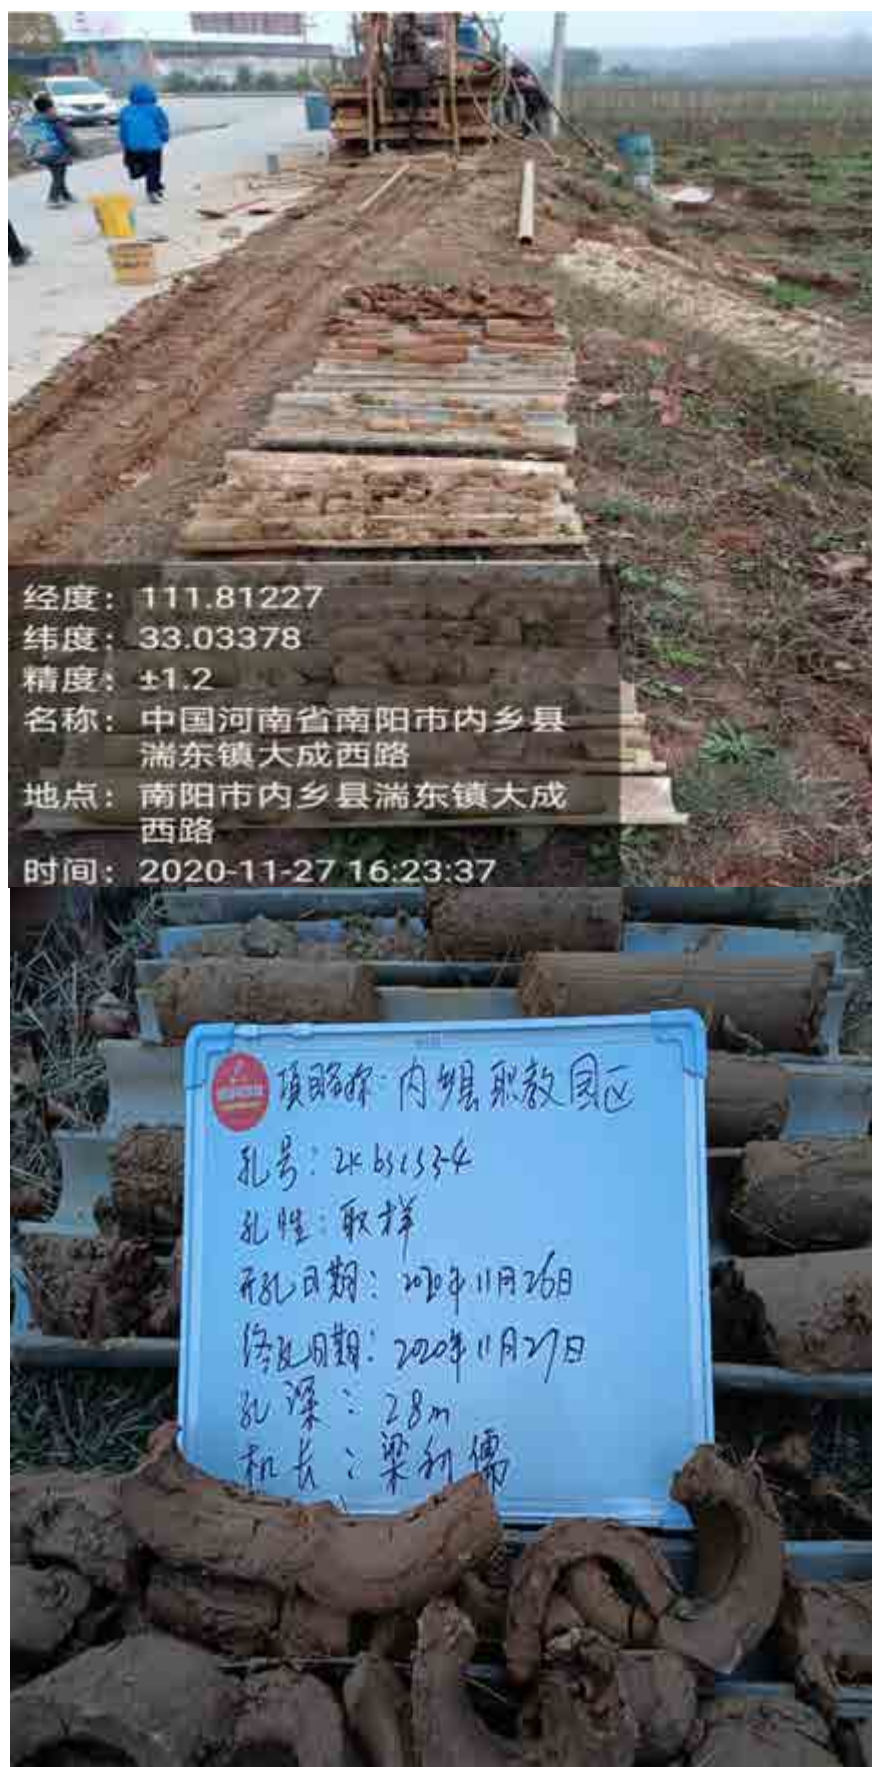 经度: 111.81227
纬度: 33.03378
精度: ±1.2
名称: 中国河南省南阳市内乡县
湍东镇大成西路
地点: 南阳市内乡县湍东镇大成
西路
时间: 2020-11-27 16:23:37
项目名称: 内乡县职教园区
孔号: ZKbsc53-4
孔性: 取样
开孔日期: 2020年11月26日
终孔日期: 2020年11月27日
孔深: 28m
机长: 梁利儒